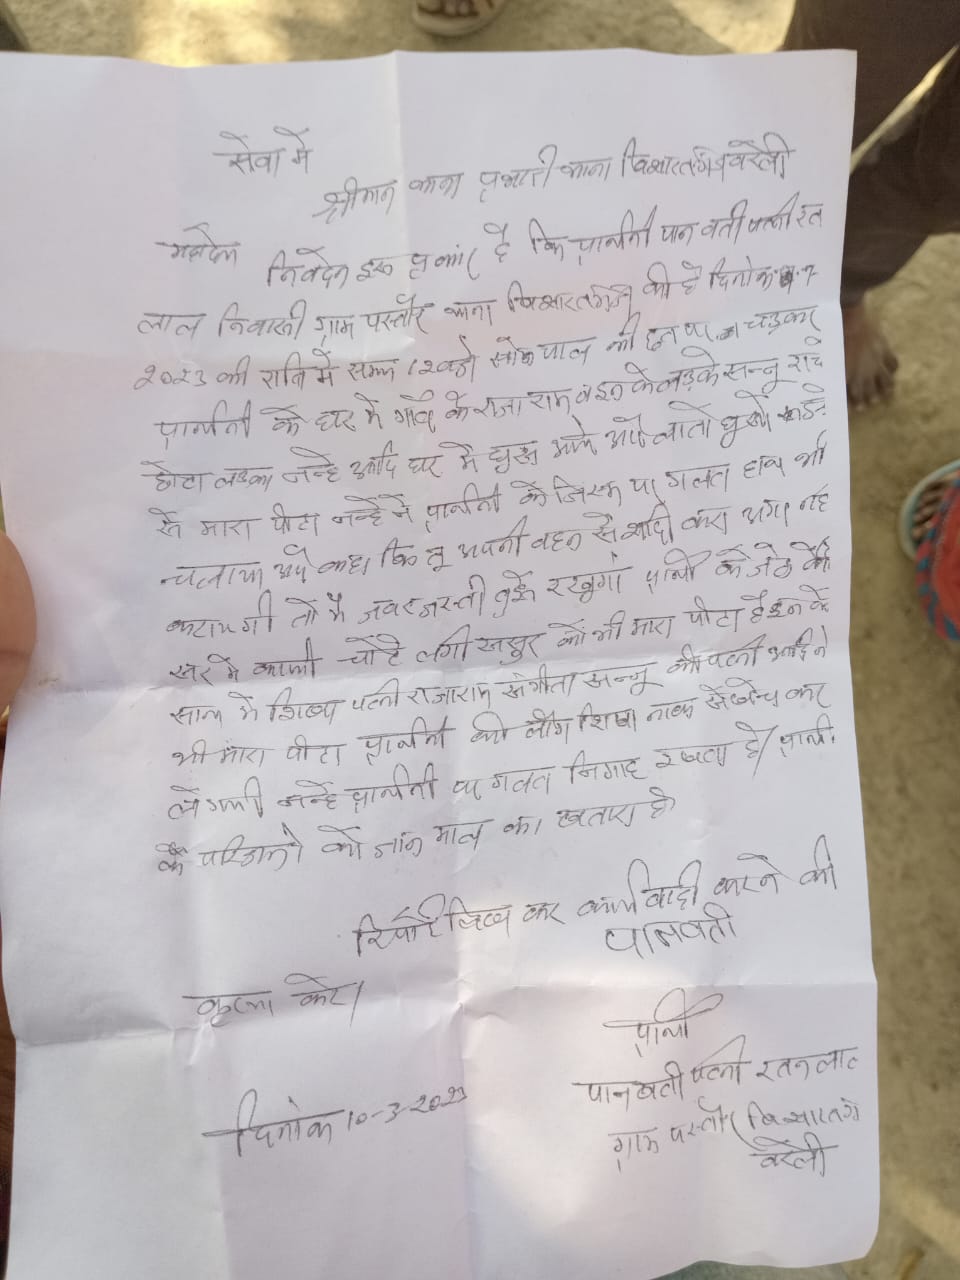 सेवा में
श्रीमान थाना प्रभारी थाना बिशारतगंज बरेली
महोदय
निवेदन इस प्रकार है कि प्रार्थिनी पानवती पत्नी रतन
लाल निवासी ग्राम पस्तौर थाना बिशारतगंज की है दिनांक
2023 की रात्रि में समय 12 बजे पाल की छत पर चढ़कर
प्रार्थिनी के घर में गाँव के राजाराम व इनके लड़के सन्नू
छोटा लड़का नन्हे आदि घर में घुस आये और लातो घूसों डन्डे
से मारा पीटा नन्हे ने प्रार्थिनी के जिस्म पर गलत हाथ भी
चलाया और कहा कि तू अपनी बहन से शादी करा अगर नही
करायगी तो मै जबरजस्ती तुझे रखूगां प्रार्थी के जेठ के
सर में काफी चोंटे लगी ससुर को भी मारा पीटा है इन के
साथ में पत्नी राजाराम संगीता सन्नू की पत्नी आदि ने
भी मारा पीटा प्रार्थिनी की लौंग नाक से खेंच कर
ले गयी नन्हे प्रार्थिनी पर गलत निगाह रखता है। प्रार्थी
के परिवार को जान माल का खतरा है
रिपोर्ट लिख कर कार्यवाही करने की
पानवती
कृपा करें।
प्रार्थी
पानवती पत्नी रतनलाल
दिनांक 10-3-2023
ग्राम पस्तौर बिशारतगंज
बरेली